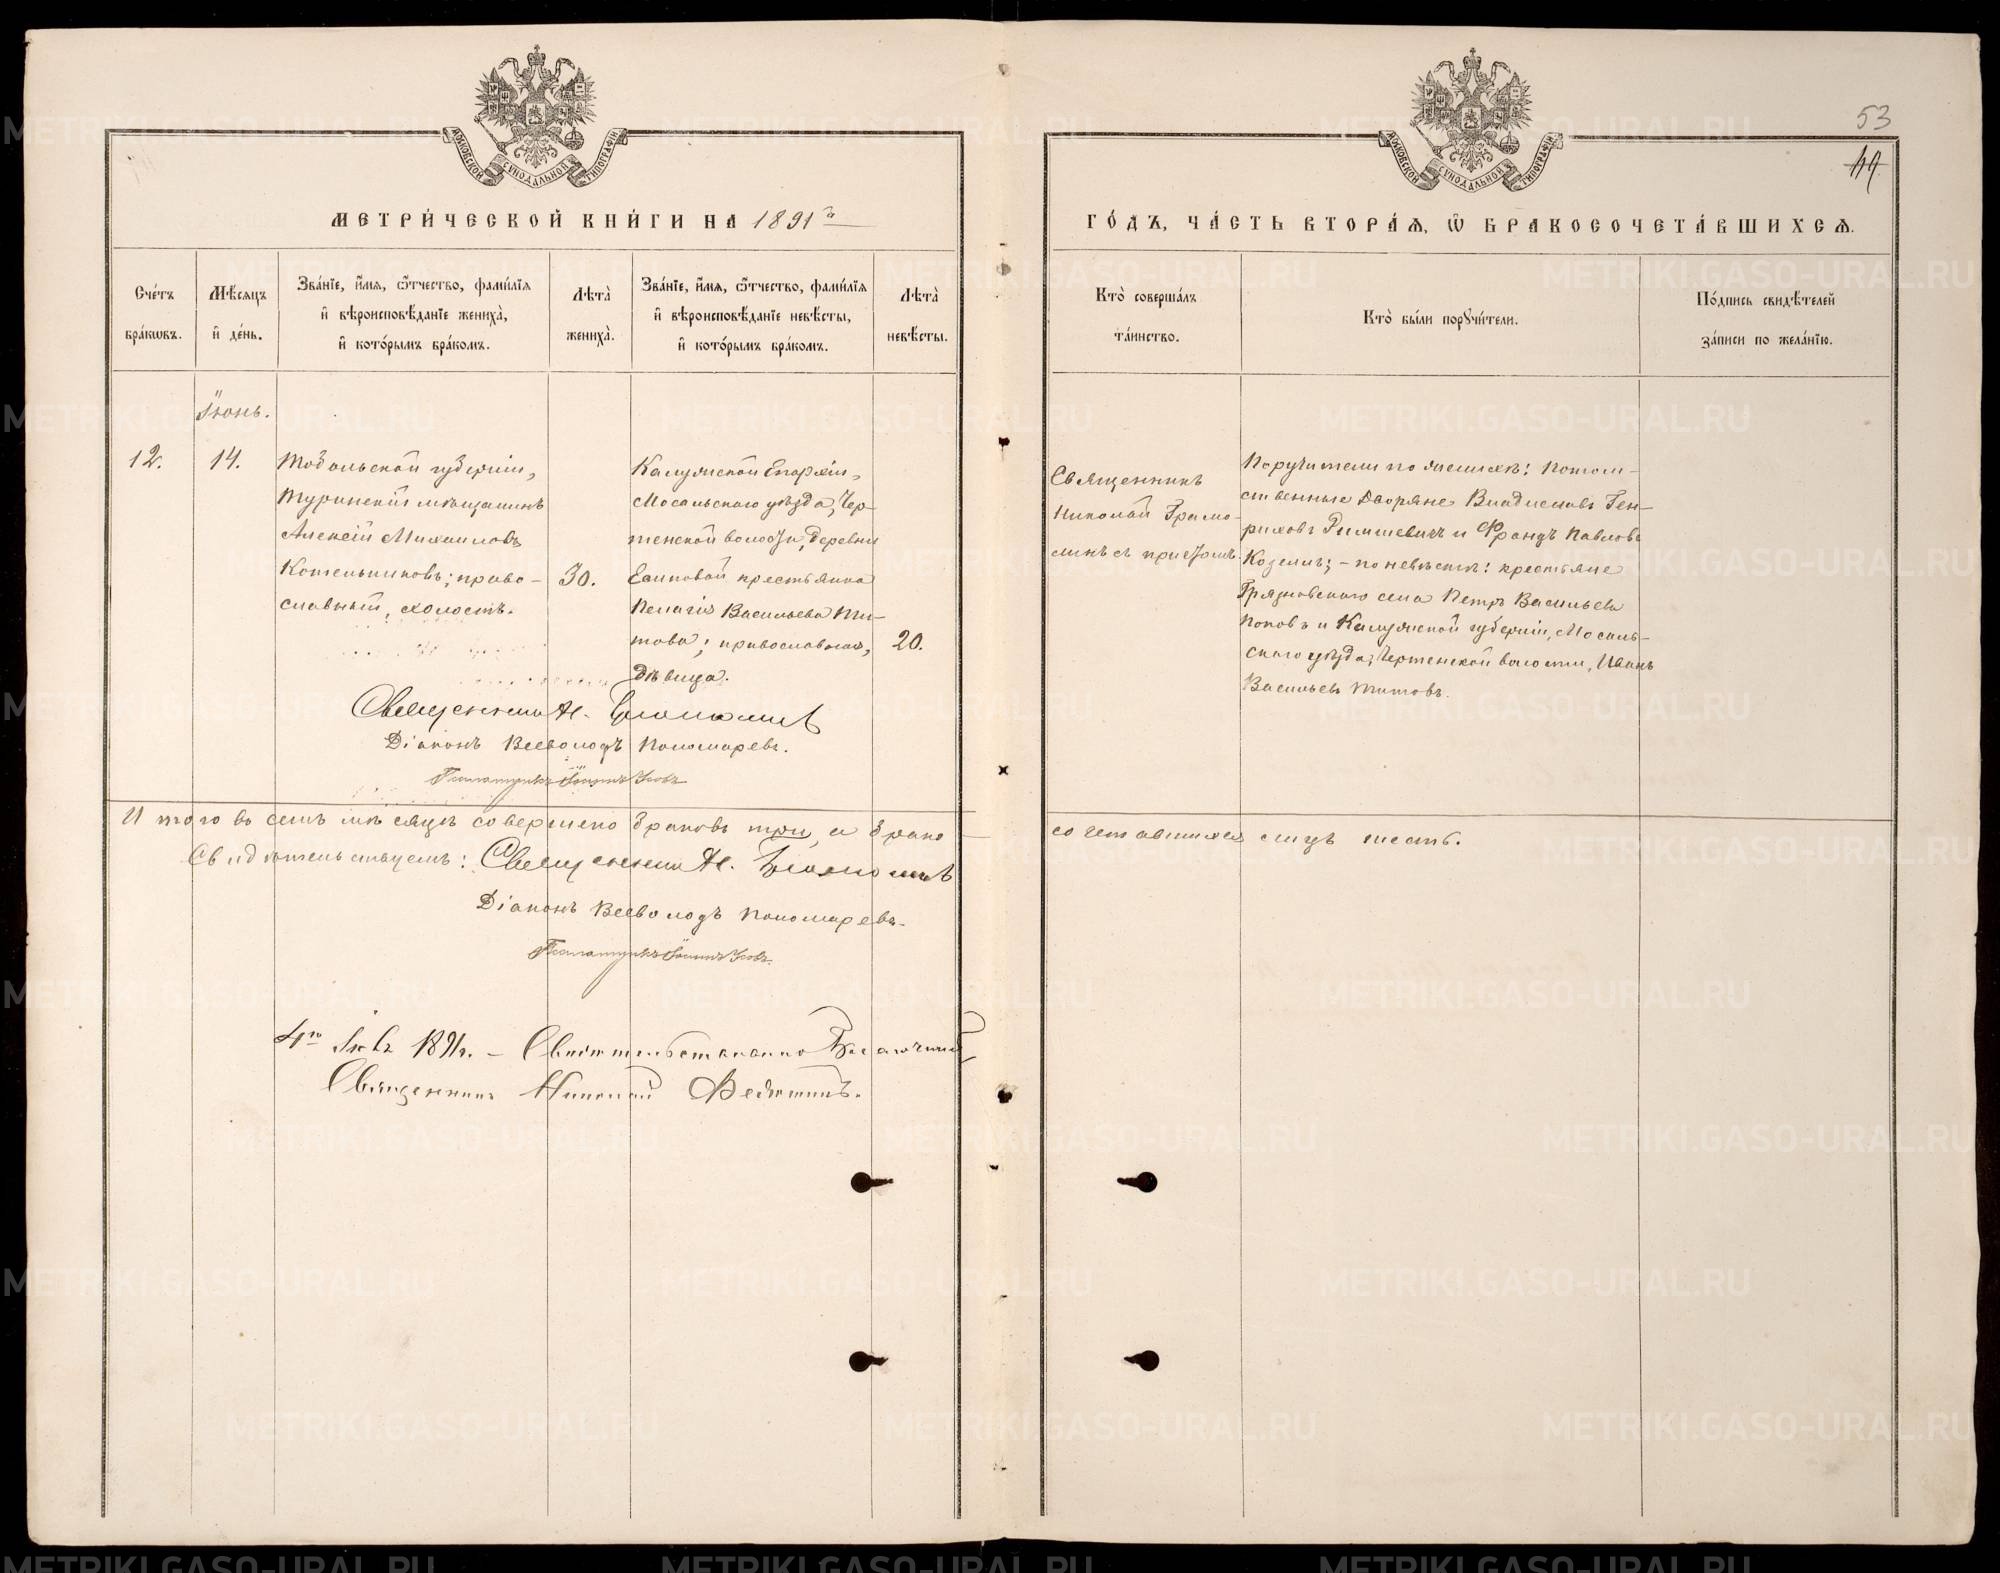 МОСКОВСКОЙ СУНОДАЛЬНОЙ ТИПОГРАФІИ
МЕТРИ́ЧЕСКОЙ КНИ́ГИ НА 1891й
Сче́тъ бра́кωвъ.
Мѣ́сяцъ и҆ де́нь.
Зва́нїе, и҆́мя, ѿ́чество, фами́лїя
и҆ вѣроисповѣ́данїе жениха̀,
и҆ кото́рымъ бра́комъ.
Лѣта̀ жениха̀.
Зва́нїе, и҆́мя, ѿ́чество, фами́лїя
и҆ вѣроисповѣ́данїе невѣ́сты,
и҆ кото́рымъ бра́комъ.
Лѣта̀ невѣ́сты.
Іюнь.
12.
14.
Тобольской губерніи,
Туринскій мѣщанинъ
Алексій Михаиловъ
Котельниковъ; право-
славный, холостъ.
30.
Калужской Епархіи,
Мосальскаго уѣзда, Чер-
тенской волости, деревни
крестьянка
Пелагія Васильева Ти-
това; православная,
дѣвица.
20.
Священник Н.
Діаконъ Всеволодъ Пономаревъ.
Псаломщикъ
Итого въ семъ мѣсяцѣ совершено браковъ три, а брако
Свидѣтельствуемъ: Священник Н.
Діаконъ Всеволодъ Пономаревъ.
Псаломщикъ
1891г. – Свидѣтельствовано Благочинный
Священникъ Николай
53
44
МОСКОВСКОЙ СУНОДАЛЬНОЙ ТИПОГРАФІИ
ГО́ДЪ, ЧА́СТЬ ВТОРА́Я, Ѡ҆ БРАКОСОЧЕТА́ВШИХСЯ.
Кто̀ соверша́лъ та́инство.
Кто̀ бы́ли порꙋчи́тели.
По́дпись свидѣ́телей за́писи по жела́нїю.
Священникъ
Николай Грамо-
линъ съ причтомъ.
Поручители по женихѣ: потом-
ственные дворяне Владиславъ Ген-
риховъ Римшевичъ и Францъ Павловъ
Козелъ; – по невѣстѣ: крестьяне
Грязновскаго села Петръ Васильевъ
Поповъ и Калужской губерніи, Мосаль-
скаго уѣзда, Чертенской волости, Иванъ
Васильевъ Титовъ.
сочетавшихся лицъ шесть.
METRIKI.GASO-URAL.RU